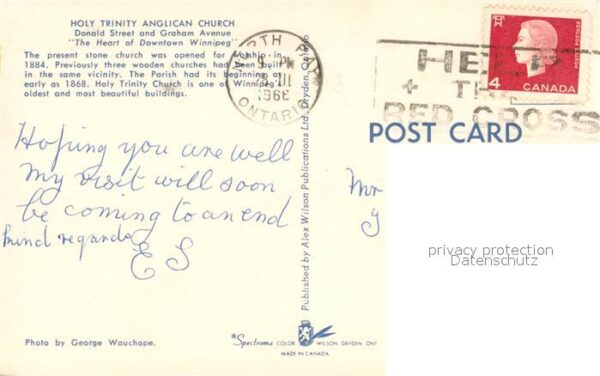 HOLY TRINITY ANGLICAN CHURCH
Donald Street and Graham Avenue
"The Heart of Downtown Winnipeg"
The present stone church was opened for worship in
1884. Previously three wooden churches had been built
in the same vicinity. The Parish had its beginning
early as 1868. Holy Trinity Church is one of Winnipeg's
oldest and most beautiful buildings.
NORTH BAY
PM
1966
ONTARIO
HELP
+ THE
RED CROSS
POSTES POSTAGE
4
CANADA
POST CARD
Hoping you are well
My visit will soon
be coming to an end
kind regards
E S
Mr
Published by Alex Wilson Publications Ltd., Dryden, Ontario
privacy protection
Datenschutz
Photo by George Wauchope.
Spectrome COLOR WILSON, DRYDEN, ONT
MADE IN CANADA